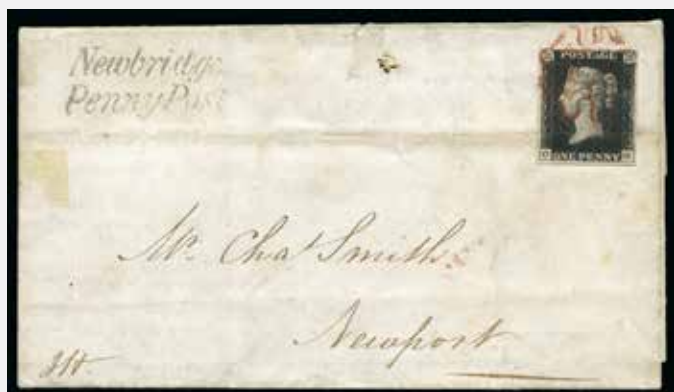 Newbridge
Penny Post
POSTAGE
ONE PENNY
Mr. Chas Smith
Newport